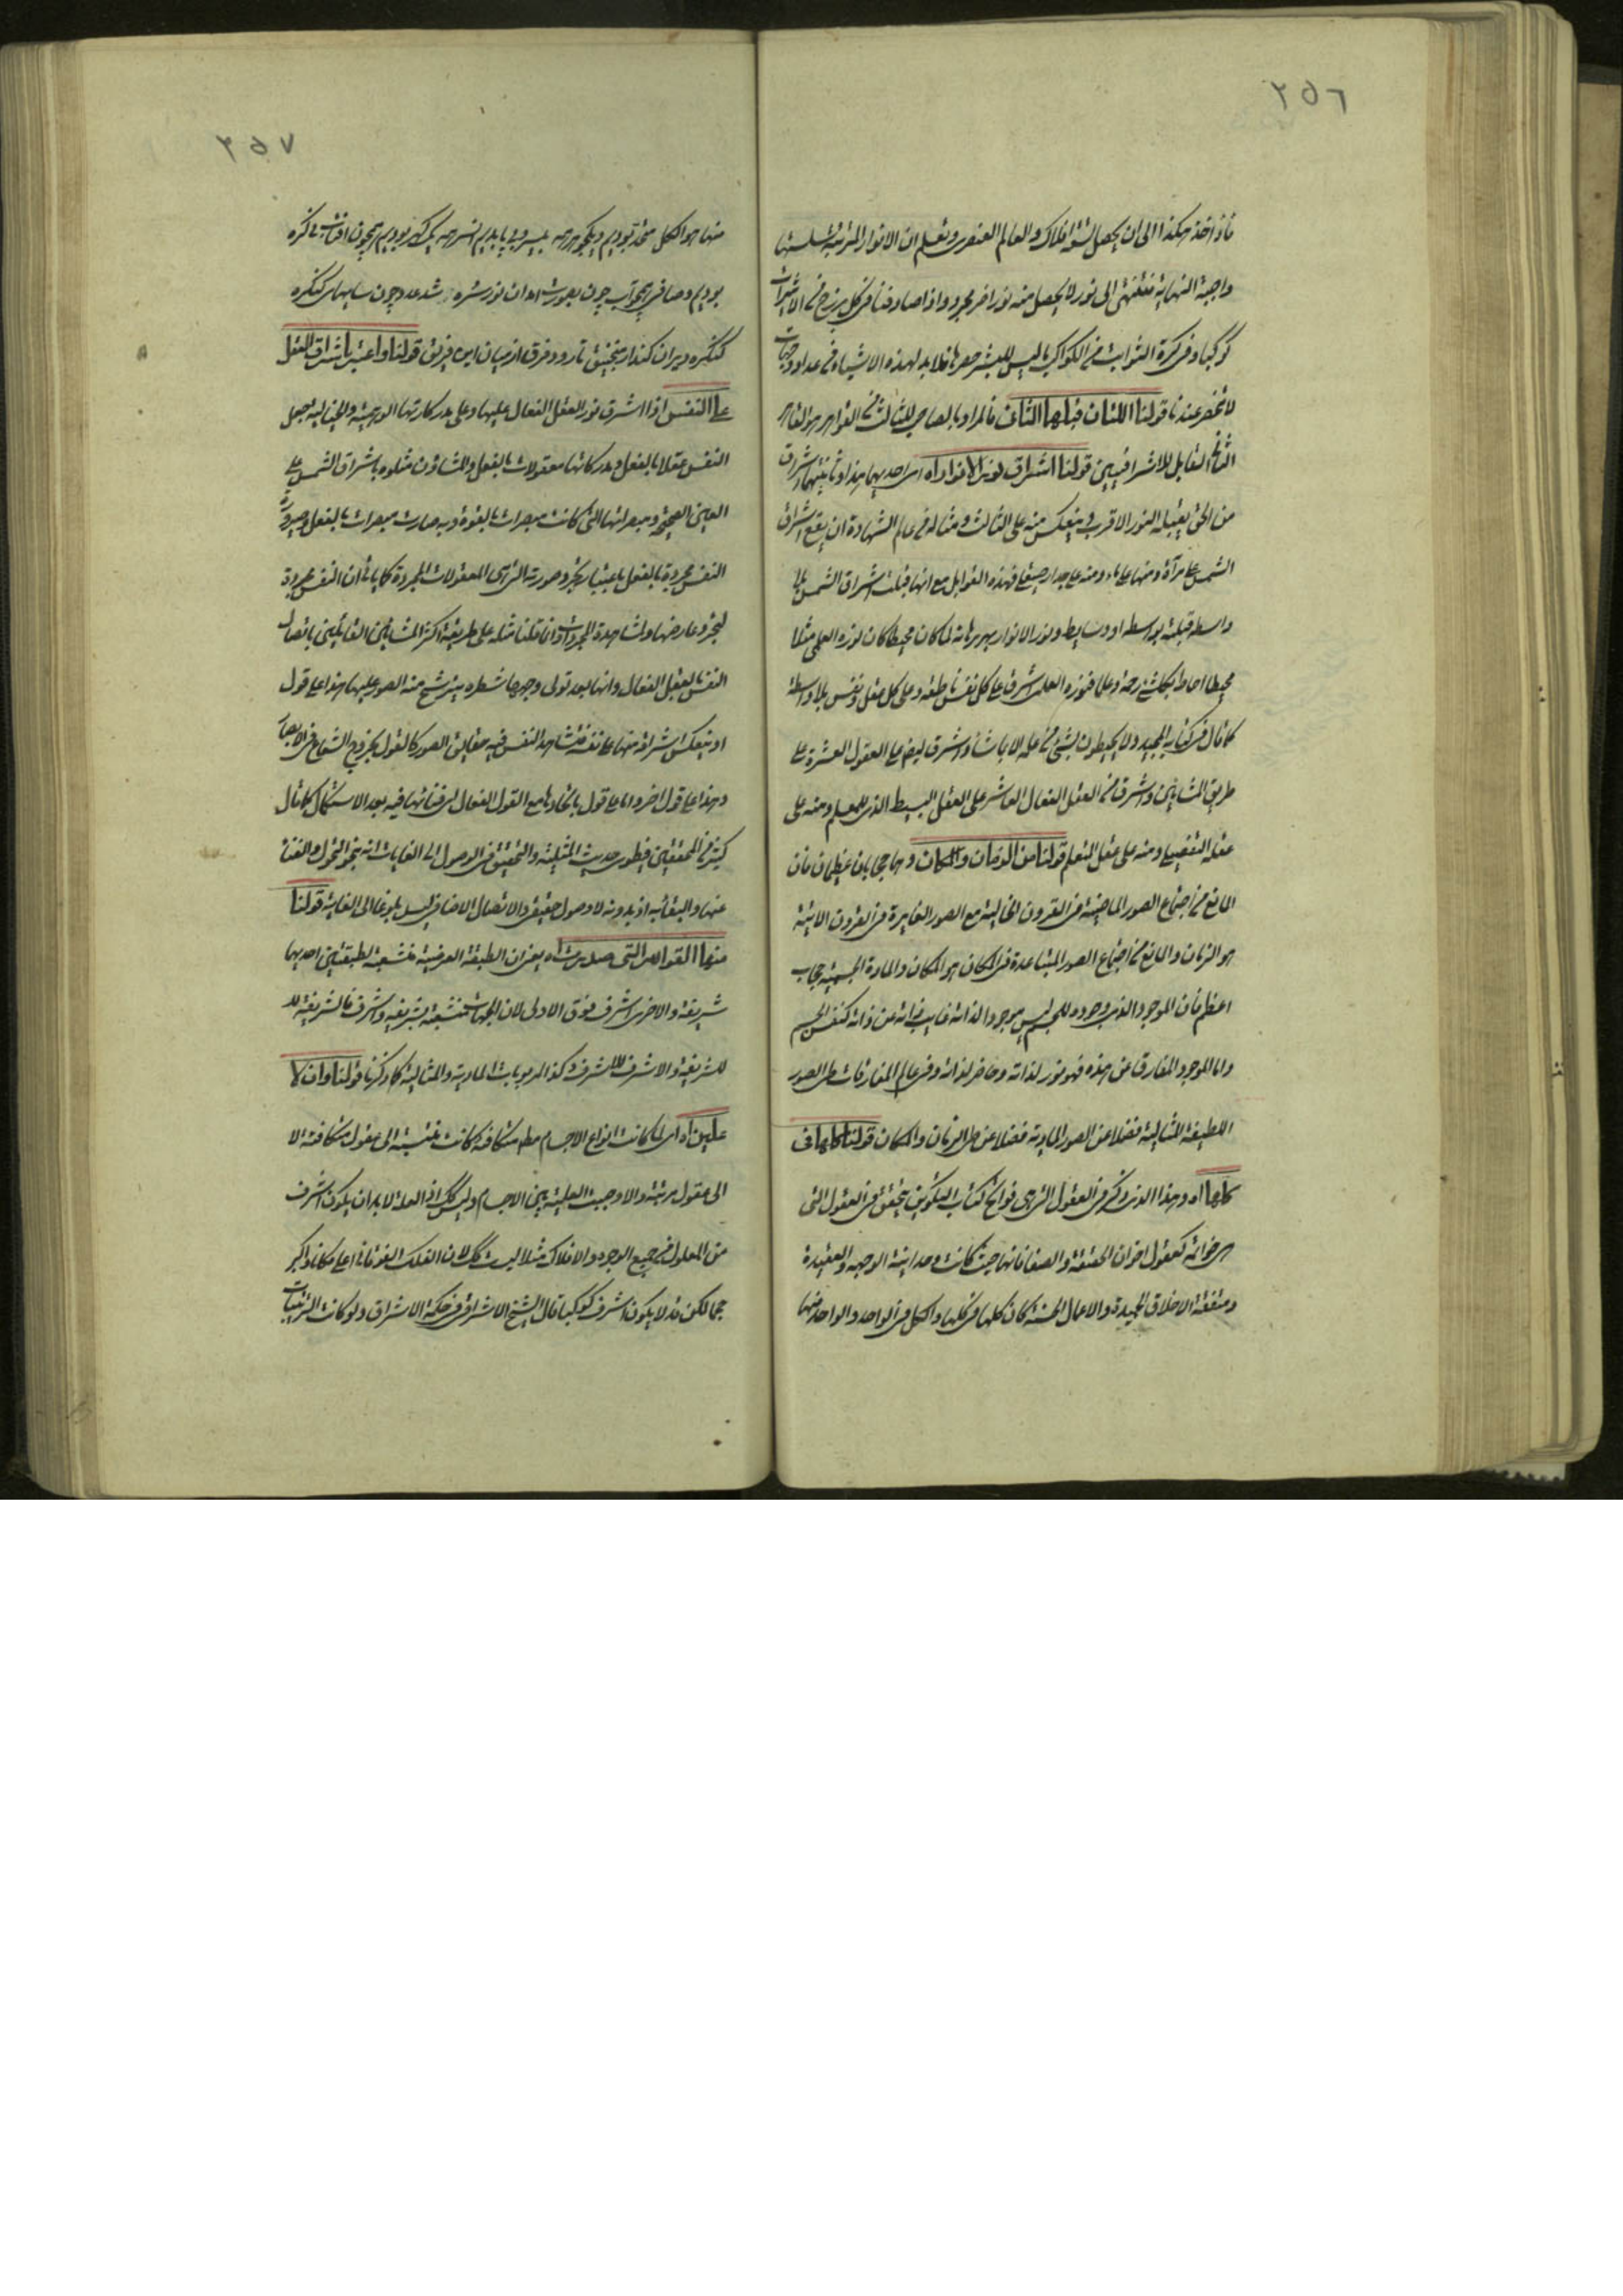 ٢٥٦
فاذا اخذ هكذا الى ان يحصل تسعة افلاك والعالم العنصرى وتعلم ان الانوار المترتبة سلسلتها
واجبة النهاية فتنتهى الى نور لا يحصل منه نور اخر مجرد واذا صادفنا فى كل برزخ من الاثيريات
كوكبا وفى كرة الثوابت من الكواكب ما ليس للبشر حصرها فلا بد لهذه الاشياء من اعداد وجهات
لا تنحصر عندنا قولنا اللتان قبلها الثانى فالمراد بالصاحب للثالث من القواهر هو القاهر
الثانى القابل للاشراقيين قولنا اشراق نور الانوار اه اى احديهما هذا وثانيتهما اشراق
من الحق يقبله النور الاقرب وينعكس منه على الثالث ومثاله فى عالم الشهادة ان يقع اشراق
الشمس على مرآة ومنها على ماء ومنه على جدار صيقلى فهذه القوابل مع انها قبلت اشراق الشمس بلا
واسطة قبلته بواسطة او وسايط ونور الانوار بهر برهانه لما كان محيطا كان نوره العلمى مثلا
محيطا احاط بكل شئ رحمة وعلما فنوره العلمى اشرق على كل نفس ناطقة وعلى كل عقل ونفس بلا واسطة
كما قال فى كتابه المجيد ولا يحيطون بشئ من علمه الا بما شاء واشرق ايضا على العقول العشرة على
طريق المشائين واشرق من العقل الفعال العاشر على العقل البسيط الذى للمعلم ومنه على
عقله التفصيلى ومنه على عقل المتعلم قولنا من الزمان والمكان وهما حجابان عظيمان فان
المانع من اجتماع الصور الماضية فى القرون الخالية مع الصور الغابرة فى القرون الاتية
هو الزمان والمانع من اجتماع الصور المتباعدة فى المكان هو المكان والمادة الجسمية حجاب
اعظم فان الموجود الذى وجوده للجسم ليس موجودا لذاته غايب ذاته عن ذاته كنفس الجسم
واما الموجود المفارق عن هذه فهو نور لذاته وحاضر لذاته وفى عالم المفارقات طى الصور
اللطيفة المثالية فضلا عن الصور المادية فضلا عن طى الزمان والمكان قولنا كلها فى
كلها اه وهذا الذى ذكر فى العقول التى هى فواتح كتاب التكوين يتحقق فى العقول التى
هى خواتمه كعقول اخوان الحقيقة والصفا فانها حيث كانت وحدانية الوجهه والعقيدة
ومتفقة الاخلاق الحميدة والاعمال الحسنة كان كلها فى كلها والكل فى الواحد والواحد منها
٢٥٧
منها هو الكل متحد بوديم ويكجوهر همه بيسر و بى پا بديم انسر همه يك كهر بوديم همچون افتاب بى كره
بوديم وصافى همچو آب چون بصورت آمد ان نور سره شد عدد چون سايهاى كنكره
كنكره ويران كنيد از منجنيق تا رود فرق از ميان اين فريق قولنا واعتبر باشراق العقل
على النفس اذا اشرق نور العقل الفعال عليها وعلى مدركاتها الوهمية والخيالية جعل
النفس عقلا بالفعل ومدركاتها معقولات بالفعل والمشاؤن مثلوه باشراق الشمس على
العين الصحيحة ومبصراتها التى كانت مبصرات بالقوة وبه صارت مبصرات بالفعل وصيرورة
النفس مجردة بالفعل باعتبار تجرد صورته التى هى المعقولات المجردة كما ياتى ان النفس مجردة
لتجرد عارضها ولمشاهدة المجردات وانما قلنا مثله على طريقة اكثر المشائين القائلين باتصال
النفس بالعقل الفعال وانها بعد تولى وجهها شطره يترشح منه الصور عليها هذا على قول
او ينعكس اشراقه منها على نفسه فتشاهد النفس فيه حقايق الصور كالقول بخروج الشعاع فى الابصار
وهذا على قول اخر واما على قول باتحادها مع العقل الفعال لفنائها فيه بعد الاستكمال كما قال
كثير من المحققين فطوى حديث المثلية والتحقيق فى الوصول الى الغايات انه بنحو التحول والفناء
عنها والبقاء به اذ بدونه لا وصول حقيقى والاتصال الاضافى ليس بلوغا الى الغاية قولنا
منها القواهر التى صدرت اه يعنى ان الطبقة العرضية منشعبة لطبقتين احديهما
شريفة والاخرى اشرف فوق الاولى لان الجهات منشعبة بشريفة واشرف فالشريفة للـ
للشريفة والاشرف للاشرف وكذا المربوبات المادية والمثالية كما ذكرنا قولنا وان لا
علية اه اى لما كانت انواع الاجسام متكافئة كانت منتسبة الى عقول متكافئة لا
الى عقول مرتبة والا وجبت العلية بين الاجسام وليس كك اذ العلة لا بد ان يكون اشرف
من المعلول فى جميع الوجوه والافلاك مثلا ليست كك لان الفلك الفوقانى اعلى مكانا واكبر
حجما لكن قد لا يكون اشرف كوكبا قال الشيخ الاشراقى فى حكمة الاشراق ولو كانت الترتيبات